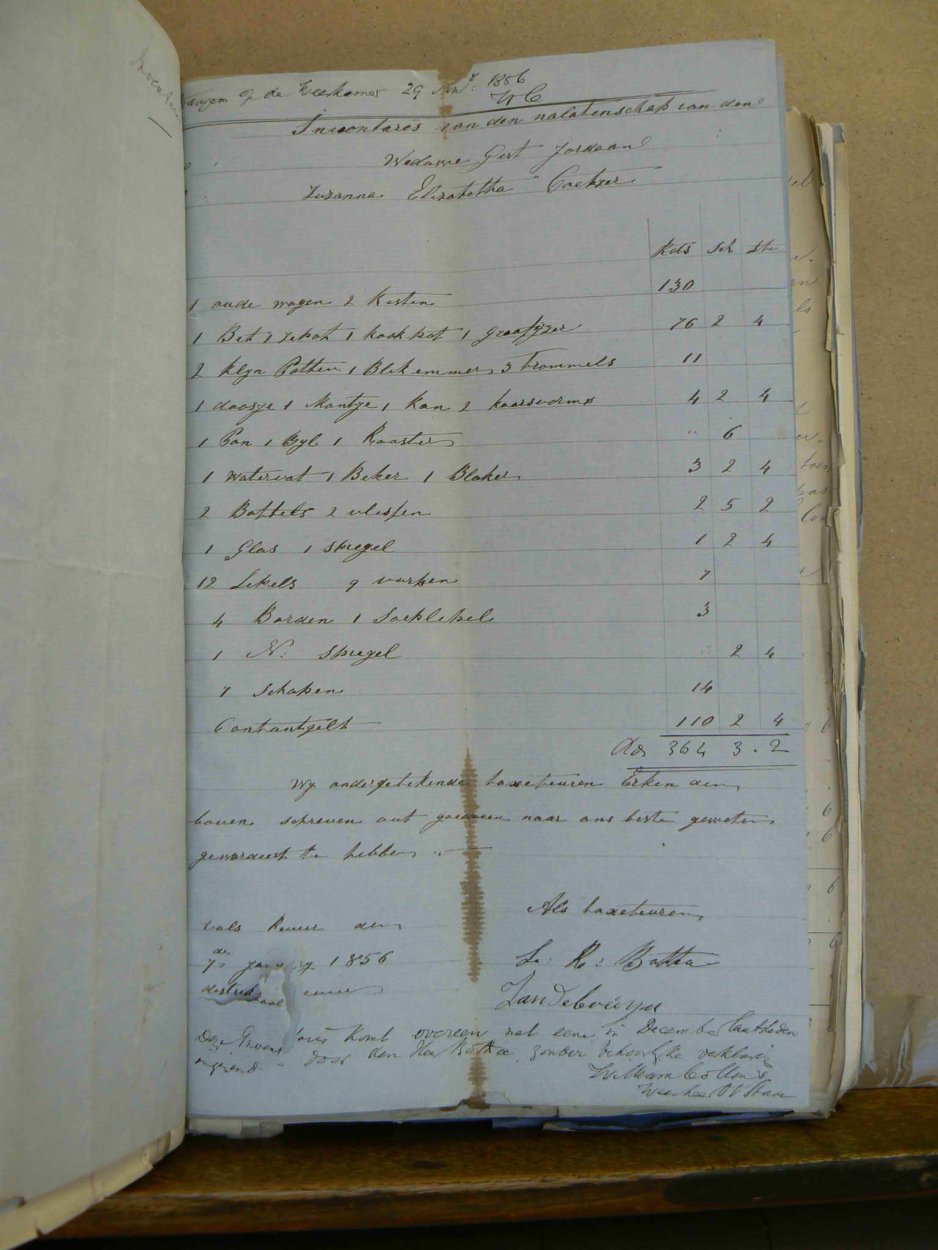 op de Weeskamer 29 Jany 1856
WC
Inwentares van den nalatenschap van den
Weduwe Gert Jordaan
Suzanna Elizabetha Coetzer
Rds Sch St
1 oude wagen 2 Kisten 130
1 Bet 1 1 kook pot 1 76 2 4
2 klyn Potten 1 Blek emmer 3 trommels 11
1 doosje 1 Mantje 1 Kan 2 kaarsvorms 4 2 4
1 Pan 1 Byl 1 Rooster " 6
1 watervat 1 Beker 1 Blaker 3 2 4
2 Bottels 2 vlessen 2 5 2
1 Glas 1 spiegel 1 2 4
12 Lepels 9 vurken 7
4 Borden 1 Soeplepel 3
1 N: spiegel 2 4
7 Schapen 14
Contantgelt 110 2 4
Rds 364 3 - 2
Wy ondergetekende taxeteuren Erken den
boven schreven out goederen naar ons beste geweten
gewardeert te hebben
Als taxeteuren
Vals Rivier den
7de 1856 L: R: Botha
destrik
Deze komt overeen met eene in December laatstleden
door den Heer Botha zonder behoorlyke
William Collins